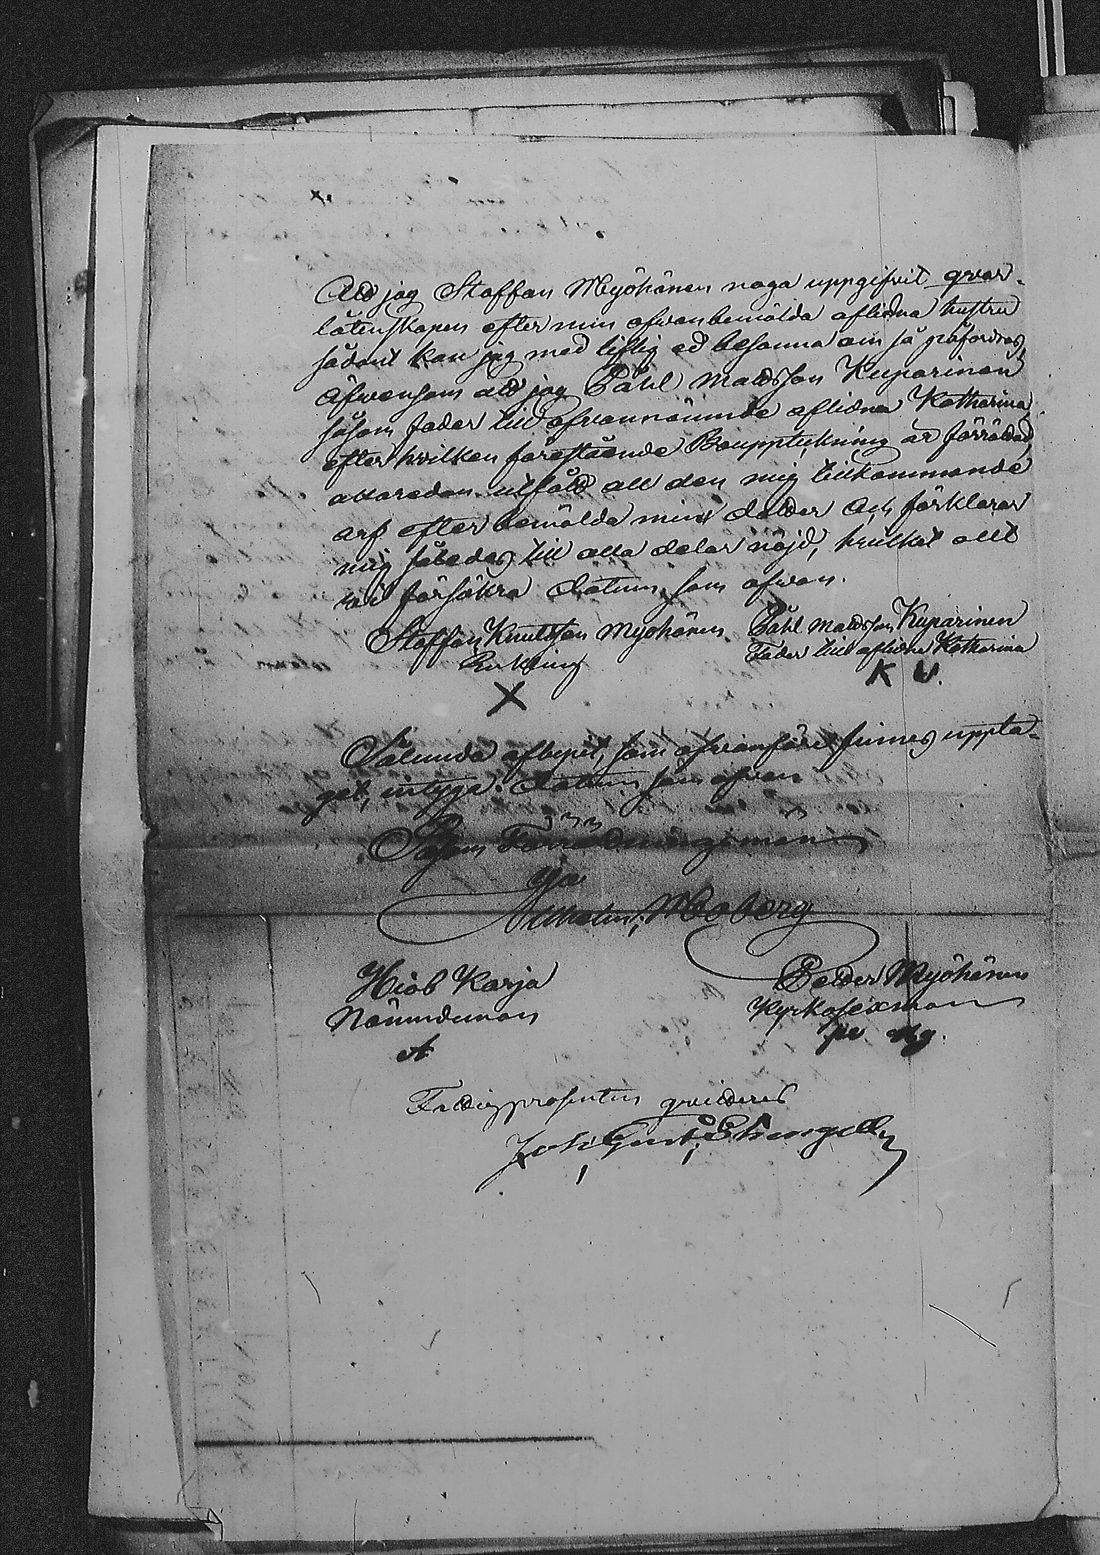 Att jag Staffan Myöhänen noga uppgifvit qvar-
låtenskapen efter min ofvanbemälda aflidna hustru
sådant kan jag med liflig ed besanna om så påfordras,
äfvensom att jag Påhl Mattsson Kuparinen
såsom fader till ofvannämnde aflidna Katharina
efter hvilken förestående Bouppteckning är förrättad,
allaredan utfått all den mig tillkommande
arf efter bemälda min dotter och förklarar
mig således till alla delar nöjd, hvilket allt
vi försäkra Datum som ofvan.
Staffan Knutsson Myöhänen Påhl Mattsson Kuparinen
Enkling Fader till aflidne Katharina
X K
Sålunda aflupit, som ofvanföre finnes uppta-
get, intyga. Datum som ofvan
Såsom Förrättningsmän
Wilhelm Moberg
Hiob Karja Petter Myöhänen
Nämndeman Kyrkosexman
A
Fattigprosenten qvitteras
Joh: Gust: Strengell